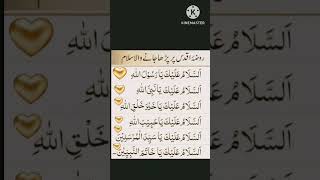 KINEMASTER
روضۂ اقدس پر پڑھا جانے والا سلام
اَلسَّلَامُ عَلَيْكَ يَا رَسُوْلَ اللهِ
اَلسَّلَامُ عَلَيْكَ يَا نَبِيَّ اللهِ
اَلسَّلَامُ عَلَيْكَ يَا خَيْرَ خَلْقِ اللهِ
اَلسَّلَامُ عَلَيْكَ يَا حَبِيْبَ اللهِ
اَلسَّلَامُ عَلَيْكَ يَا سَيِّدَ الْمُرْسَلِيْنَ
اَلسَّلَامُ عَلَيْكَ يَا خَاتَمَ النَّبِيِّيْنَ